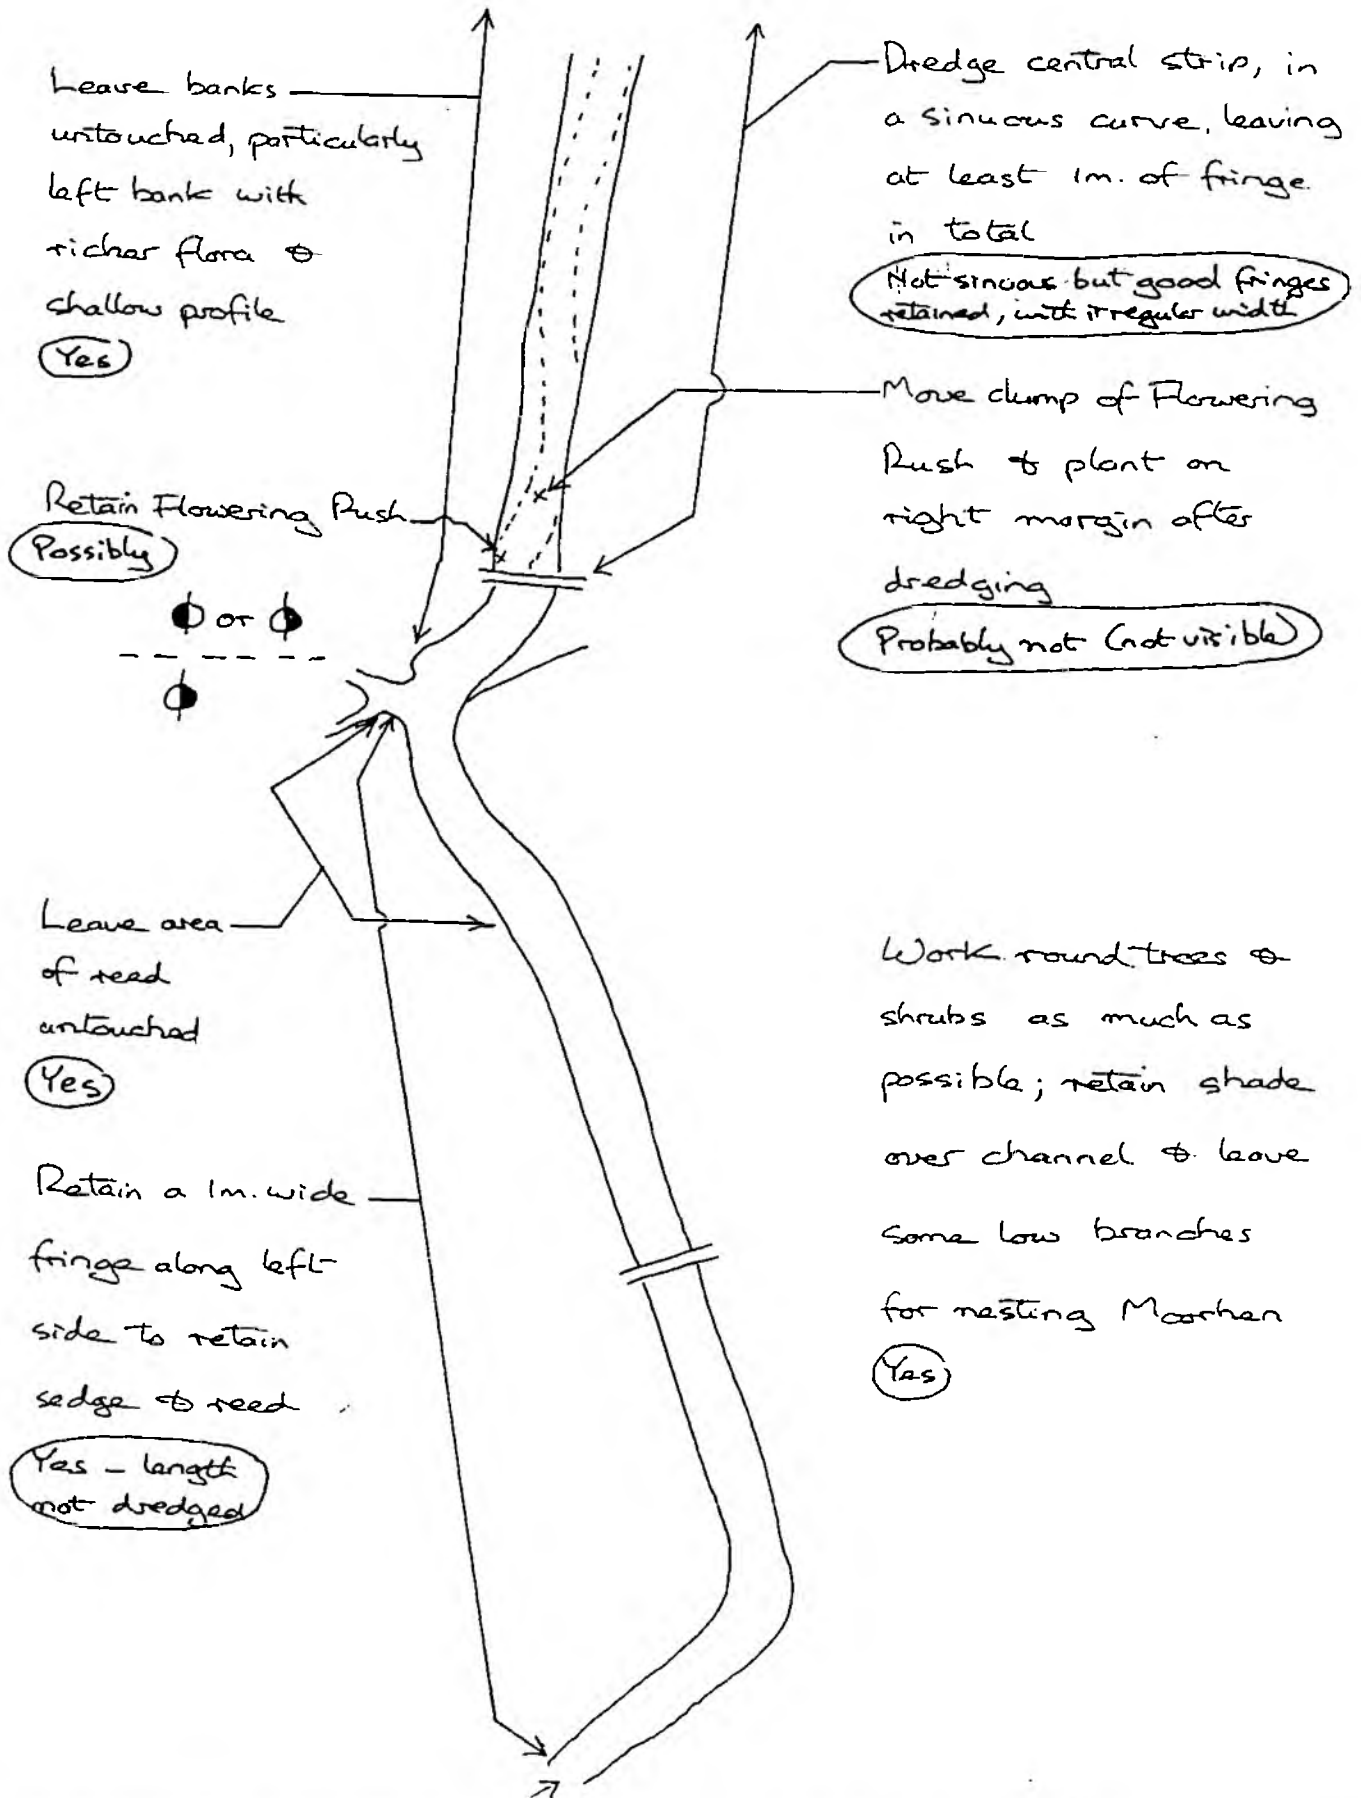 Leave banks
untouched, particularly
left bank with
richer flora &
shallow profile
Yes
Retain Flowering Rush
Possibly
or
Leave area
of reed
untouched
Yes
Retain a 1m. wide
fringe along left
side to retain
sedge & reed
Yes - length
not dredged
Dredge central strip, in
a sinuous curve, leaving
at least 1m. of fringe
in total
Not sinuous but good fringes
retained, with irregular width
Move clump of Flowering
Rush & plant on
right margin after
dredging
Probably not (not visible)
Work round trees &
shrubs as much as
possible; retain shade
over channel & leave
some low branches
for nesting Moorhen
Yes